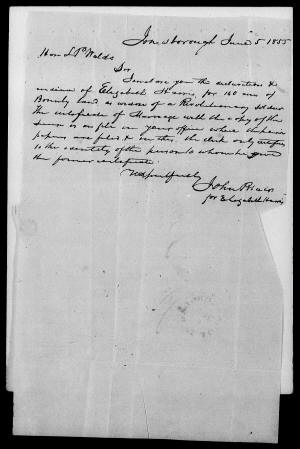 Jonesborough June 5 1855
Hon L P Waldo
Sir
I enclose you the declaration &
evidence of Elizabeth Harris, for 160 acres of
Bounty Land as widow of a Revolutionary soldier
the certificate of Marriage with the copy of the
is on file in your office where the pension
papers are filed & the clerk only certifies
to the identity of the person to whom he gave
the former certificate
Respectfully
John
for Elizabeth Harris